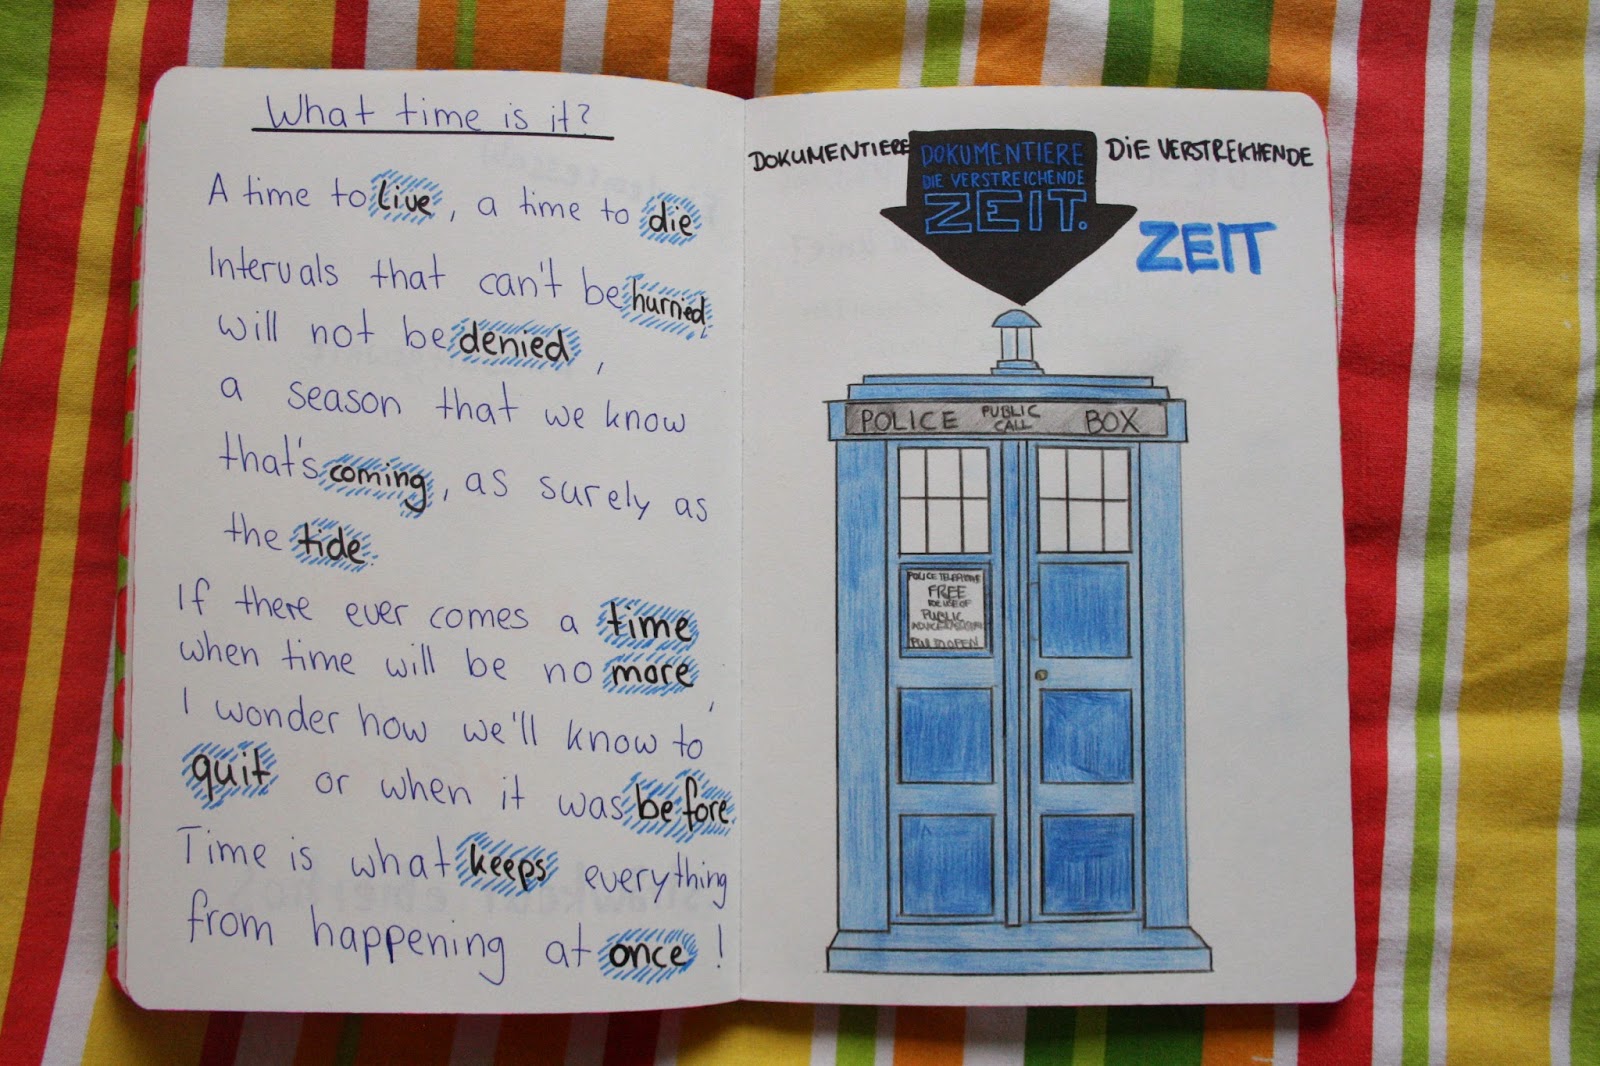 What time is it?
A time to live, a time to die
Intervals that can't be hurried,
will not be denied,
a season that we know
that's coming, as surely as
the tide.
If there ever comes a time
when time will be no more,
I wonder how we'll know to
quit or when it was before
Time is what keeps everything
from happening at once!
DOKUMENTIERE
DOKUMENTIERE
DIE VERSTREICHENDE
ZEIT.
DIE VERSTREICHENDE
ZEIT
POLICE PUBLIC CALL BOX
POLICE TELEPHONE
FREE
FOR USE OF
PUBLIC
PULL TO OPEN